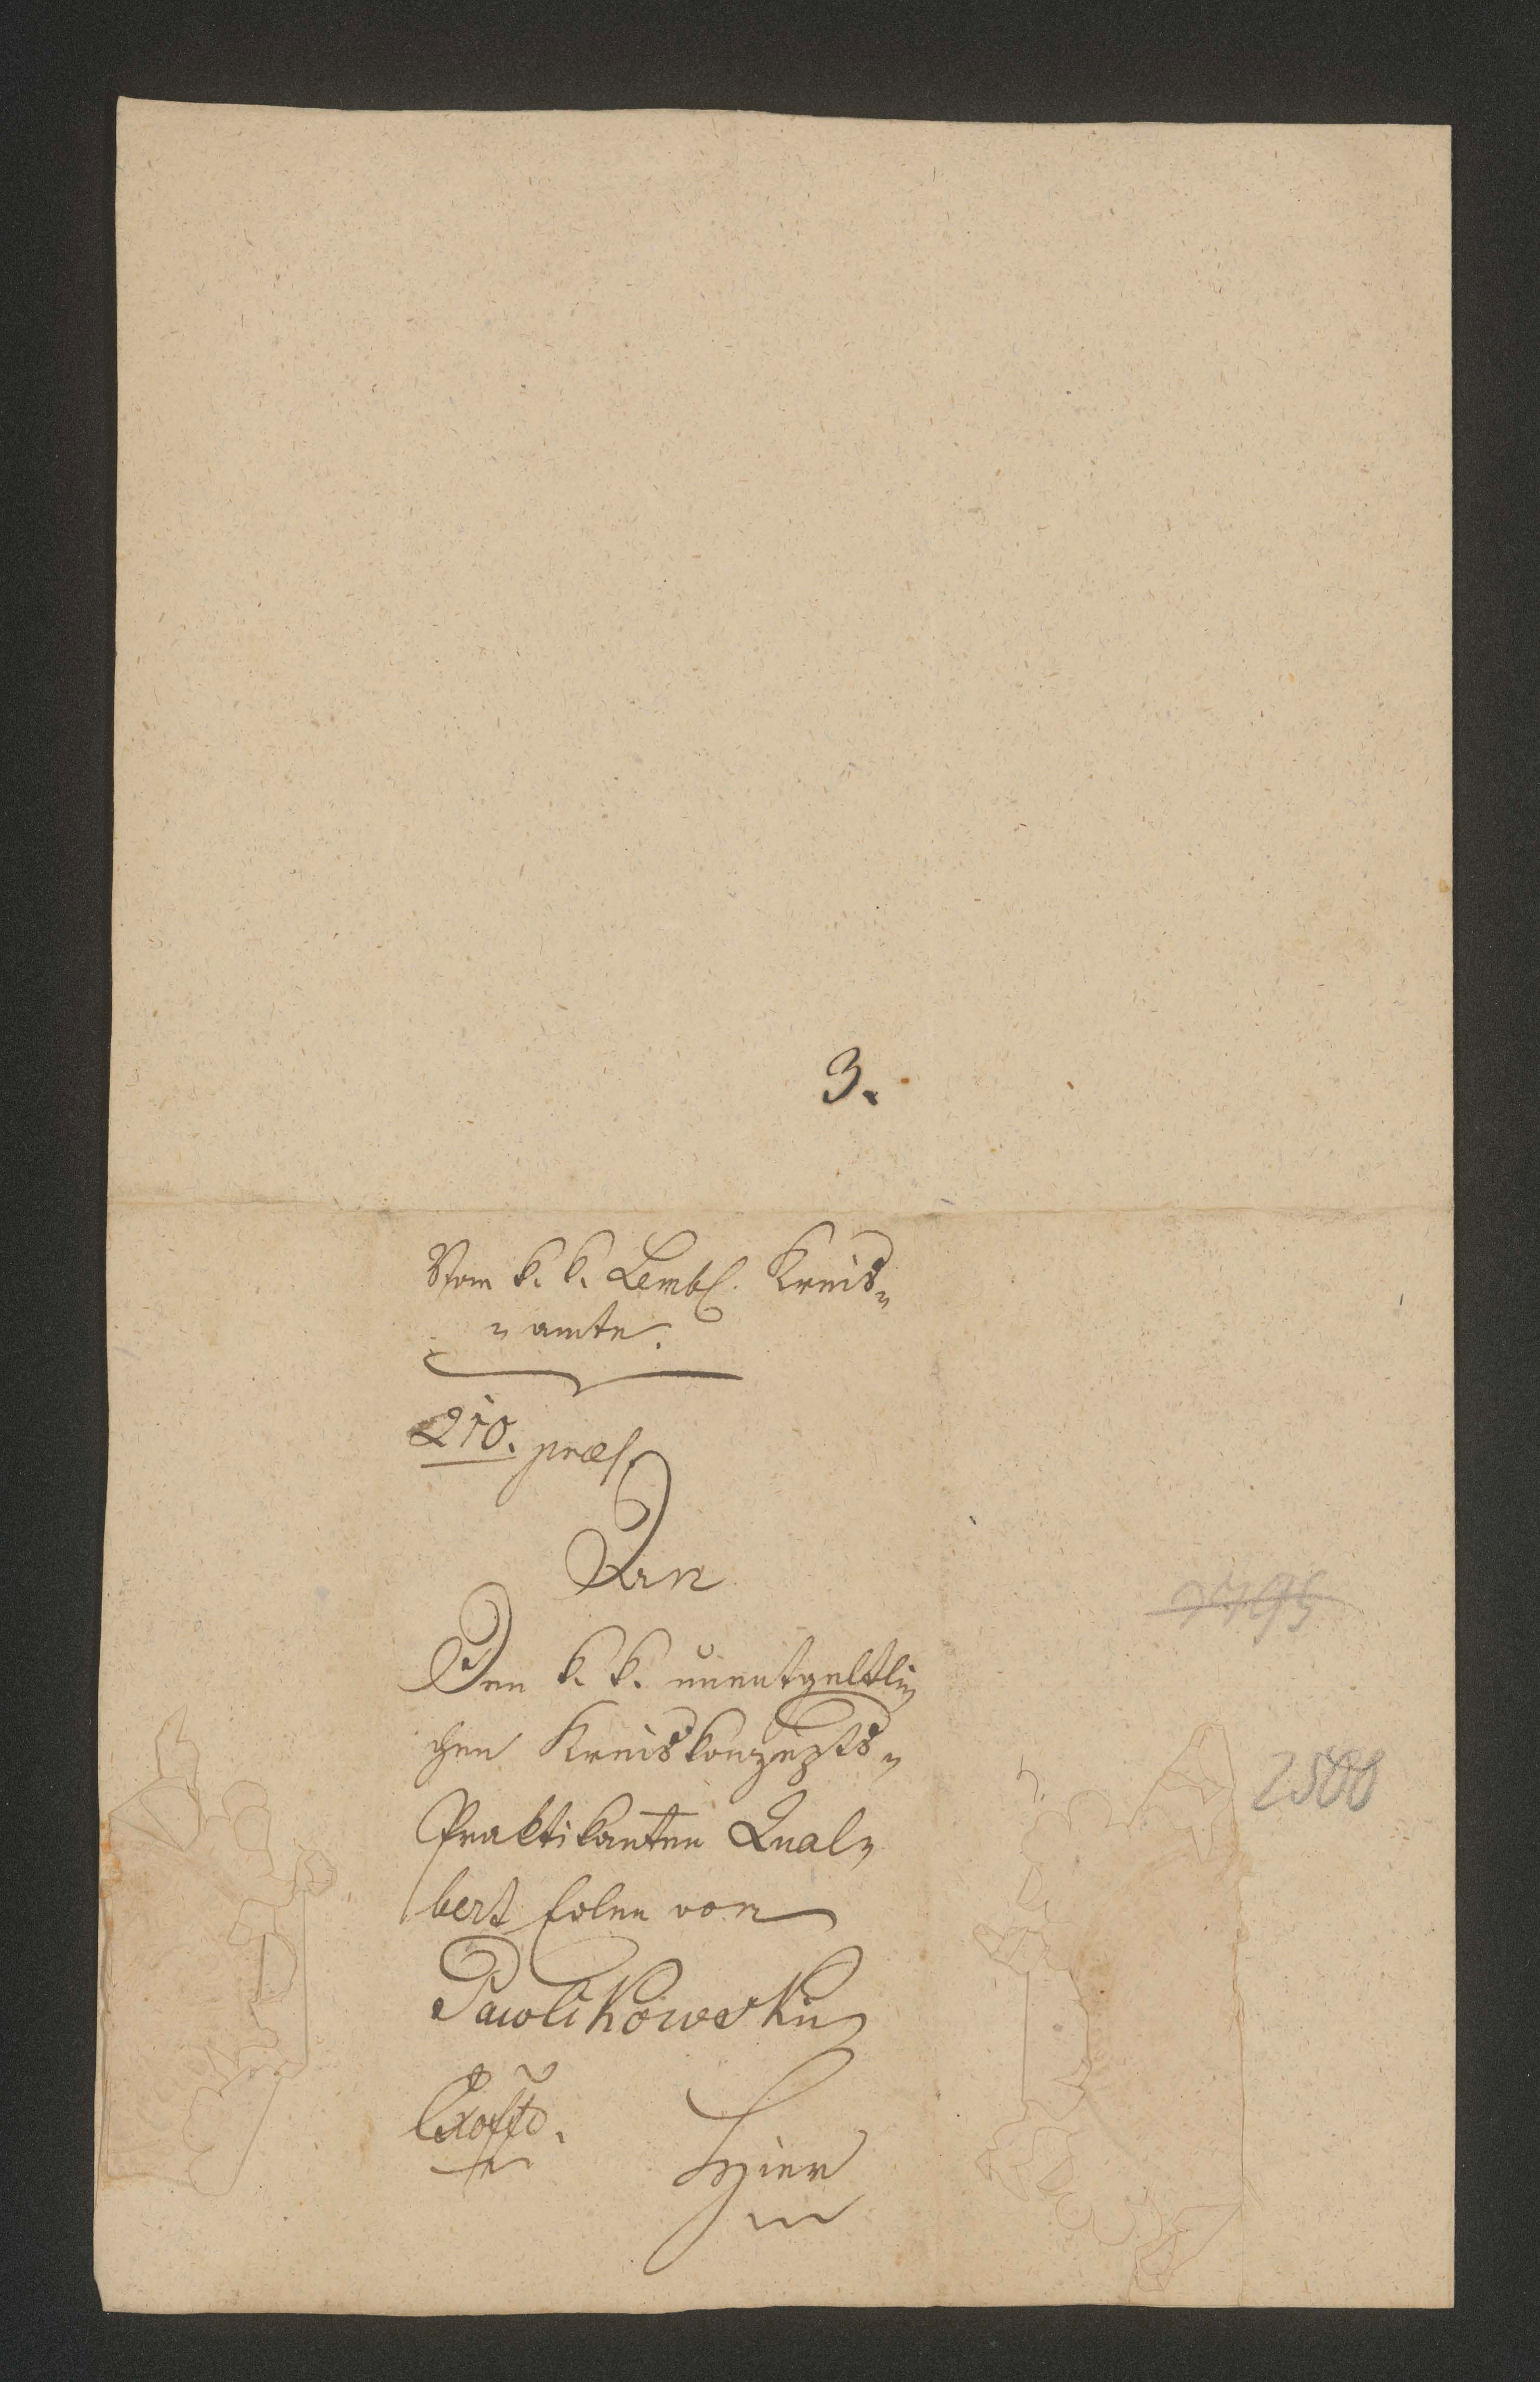 3.
Vom k. k. Lemb. Kreis-
- amte.
210. præs.
An
Den k. k. unentgeltli-
chen Kreiskonzepts-
Praktikanten Qual-
bert Edlen von
Pawlikowski
Exoffo.
Hier
2500